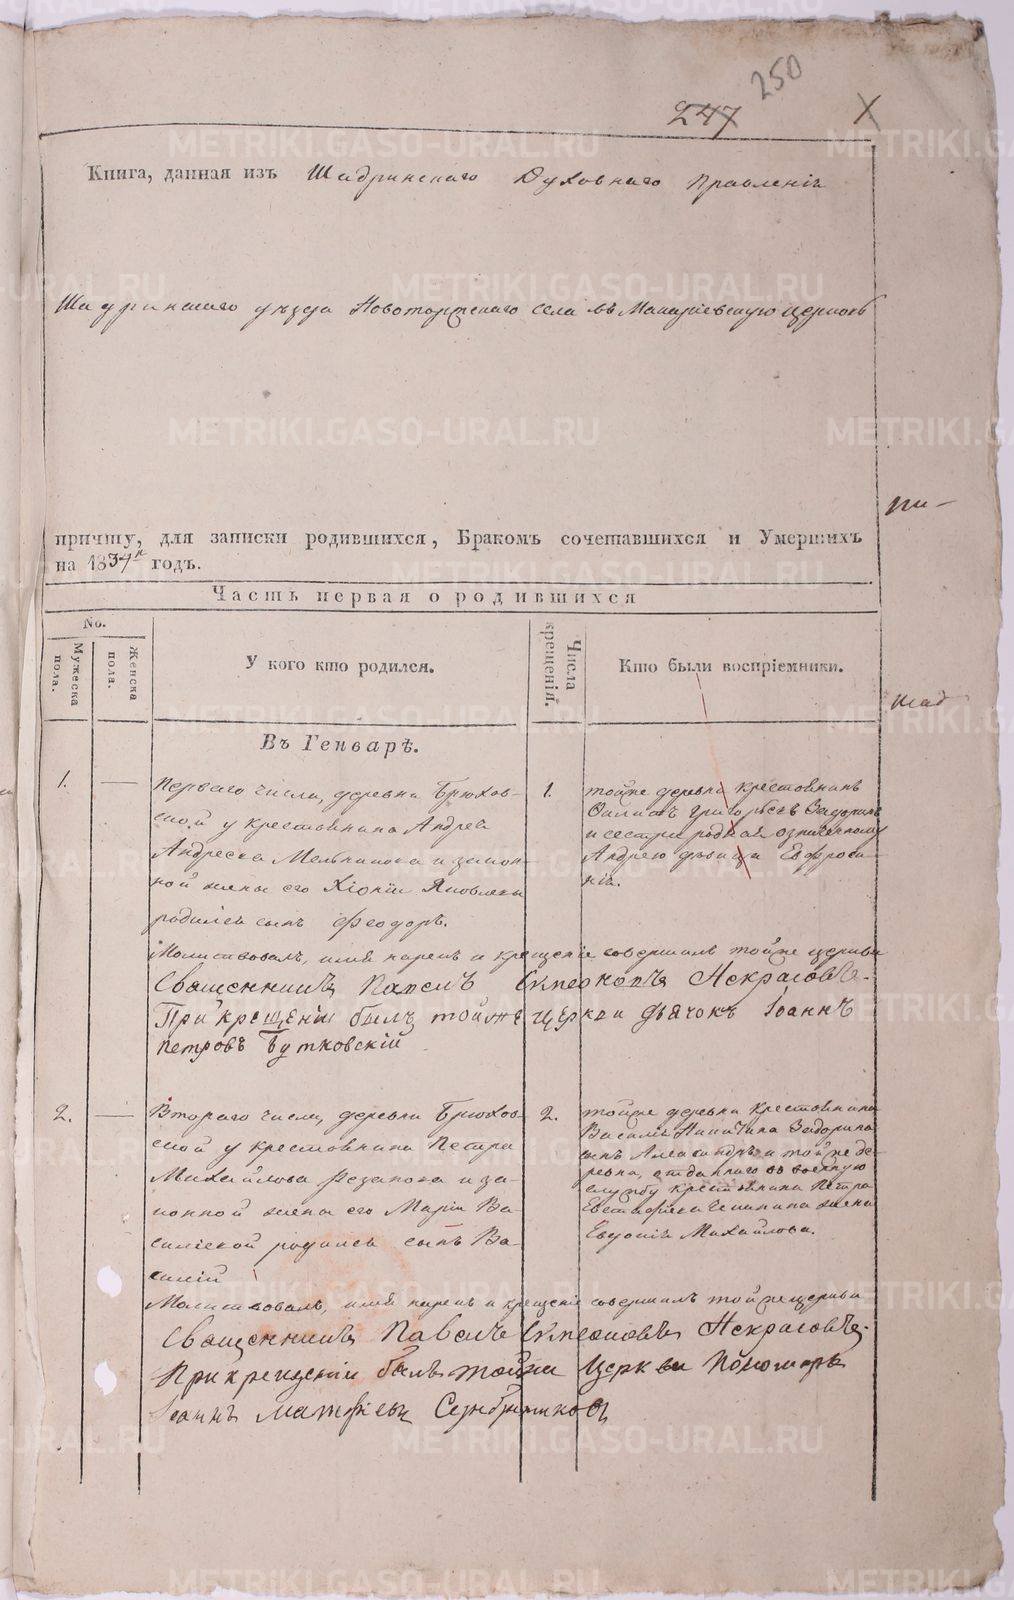 250
247
Книга, данная изъ Шадринскаго Духовнаго Правленія
Шадринскаго уѣзда Новоторжскаго села въ Макаріевскую церковь
причту, для записки родившихся, Бракомъ сочетавшихся и Умершихъ
на 1834й годъ.
Часть первая о родившихся
No.
Мужеска пола.
Женска пола.
У кого кто родился.
Числа крещенія.
Кто были воспріемники.
Въ Генварѣ.
1.
Перваго числа, деревни Брюхов-
ской у крестьянина Андрея
Андреева Мельникова и закон-
ной жены его Хіоніи Яковлевы
родился сынъ Феодоръ.
1.
тойже деревни крестьянинъ
Филипъ Григорьевъ Задоринъ
и сестра родная означенному
Андрею дѣвица Евфроси-
нія.
Молитвовалъ, имя нарекъ и крещеніе совершилъ тойже церкви
Священникъ Павелъ Симеоновъ Некрасовъ.
При крещеніи былъ тойже церкви дьячокъ Іоаннъ
Петровъ Бутковскій
2.
Втораго числа, деревни Брюхов-
ской у крестьянина Петра
Михайлова Резанова и за-
конной жены его Маріи Ва-
сильевой родился сынъ Ва-
силій
2.
тойже деревни крестьянина
Василья Никитина Задорина
сынъ Александръ и тойже де-
ревни, отданнаго въ военную
службу крестьянина Петра
Евстафіева жена
Евдокія Михайлова.
Молитвовалъ, имя нарекъ и крещеніе совершилъ тойже церкви
Священникъ Павелъ Симеоновъ Некрасовъ.
При крещеніи былъ тойже Церкви Пономарь
Іоаннъ Матфіевъ Серебрениковъ
METRIKI.GASO-URAL.RU